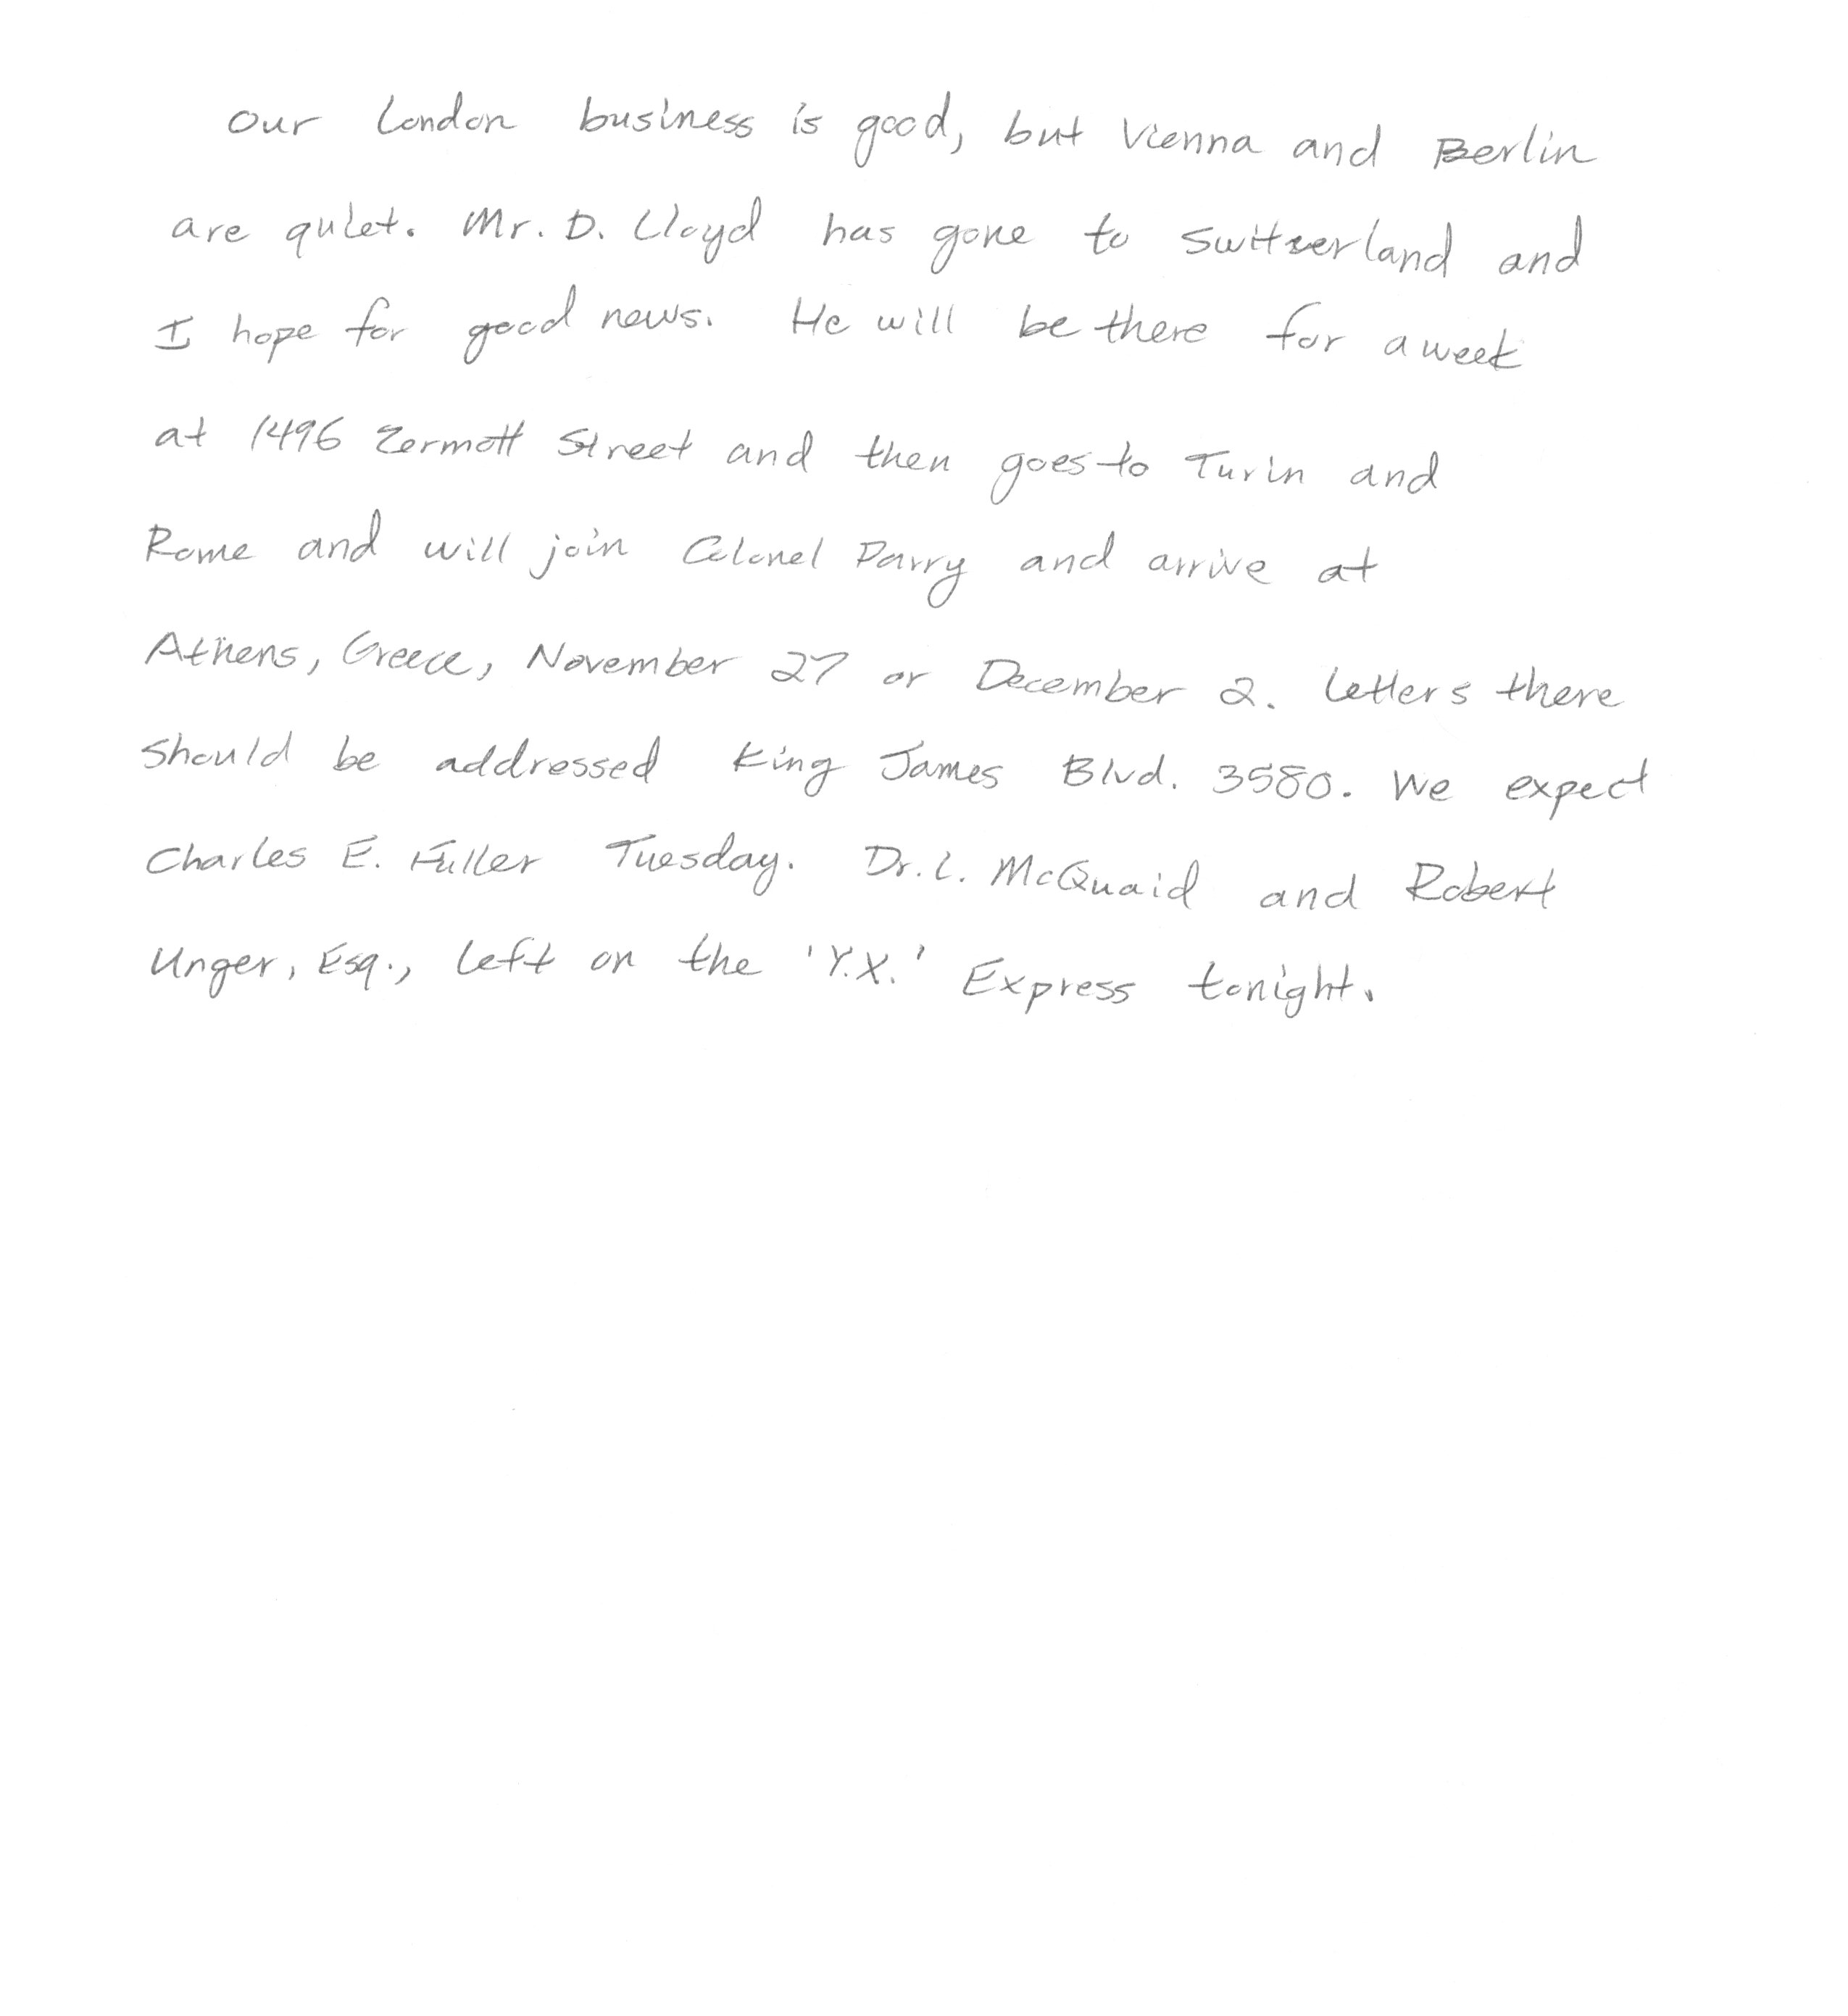 Our London business is good, but Vienna and Berlin
are quiet. Mr. D. Lloyd has gone to Switzerland and
I hope for good news. He will be there for a week
at 1496 Zermott Street and then goes to Turin and
Rome and will join Colonel Parry and arrive at
Athens, Greece, November 27 or December 2. Letters there
should be addressed King James Blvd. 3580. We expect
Charles E. Fuller Tuesday. Dr. L. McQuaid and Robert
Unger, Esq., left on the 'Y.X.' Express tonight.